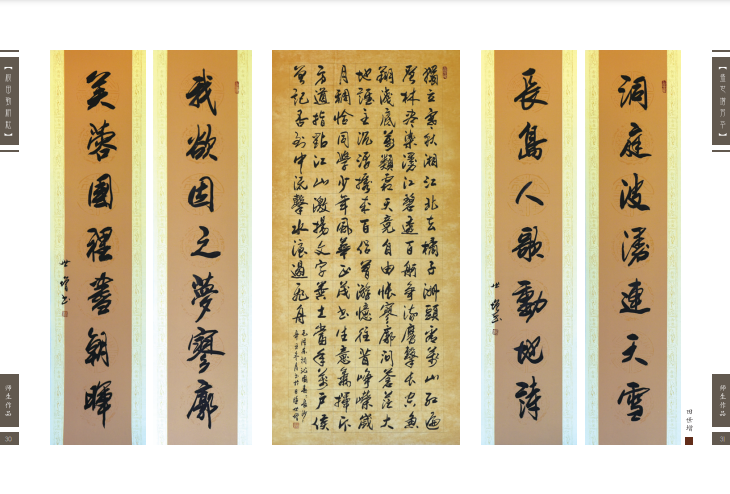 洞庭波湧連天雪
長島人歌動地詩
世增書
獨立寒秋湘江北去橘子洲頭看萬山紅遍
層林盡染漫江碧透百舸爭流鷹擊長空魚
翔淺底萬類霜天競自由悵寥廓問蒼茫大
地誰主沉浮攜來百侶曾游憶往昔崢嶸歲
月稠恰同學少年風華正茂書生意氣揮斥
方遒指點江山激揚文字糞土當年萬戶侯
曾記否到中流擊水浪遏飛舟
毛澤東詞沁園春長沙
我欲因之夢寥廓
芙蓉國裡盡朝暉
世增書
田世增
师生作品
31
师生作品
30